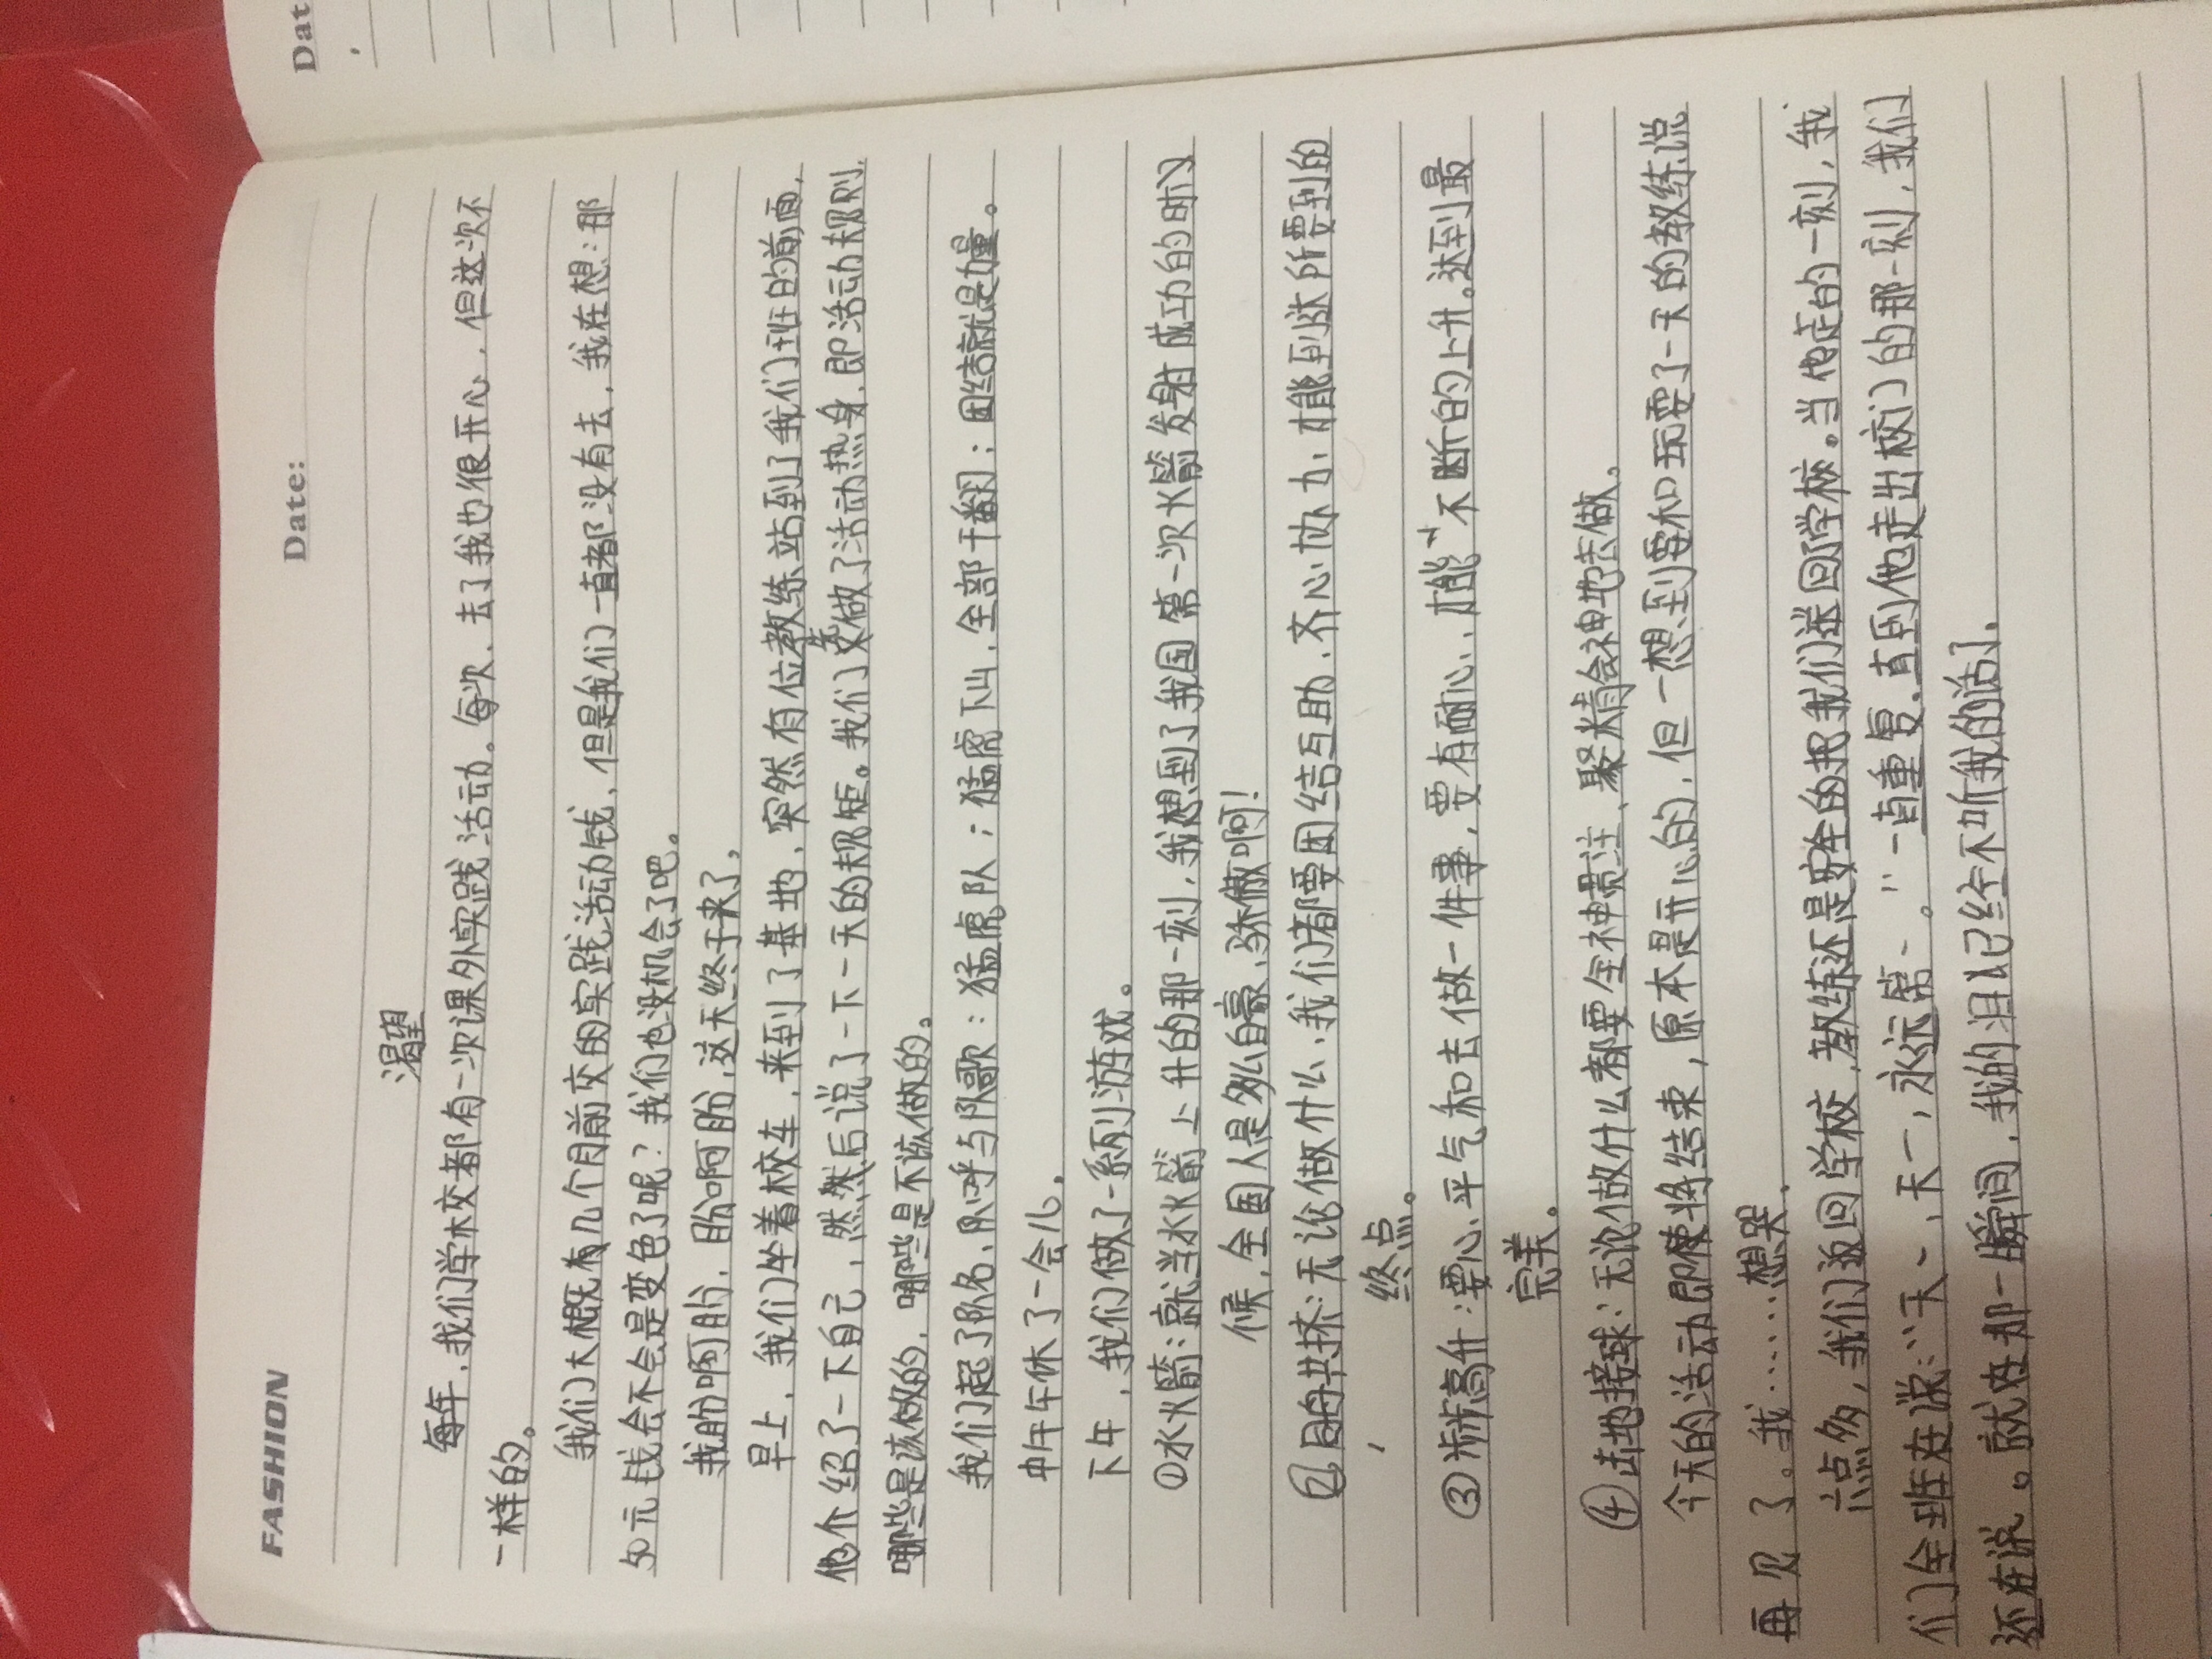 Dat
FASHION
Date:
渴望
每年，我们学校都有一次课外实践活动。每次，去了我也很开心，但这次不
一样的。
我们大概有几个月前交的实践活动钱，但是我们一直都没有去，我在想：那
50元钱会不会是变色了呢？我们也没机会了吧。
我盼啊盼，盼啊盼，这天终于来了，
早上，我们坐着校车，来到了基地，突然有位教练站到了我们班的前面，
他介绍了一下自己，然然后说了一下一天的规矩。我们先做了活动热身，即活动规则
哪些是该做的，哪些是不该做的。
我们起了队名、队呼与队歌：猛虎队；猛虎下山，全部干翻；团结就是力量。
中午午休了一会儿，
下午，我们做了一系列游戏。
①水火箭：就当水火箭上升的那一刻，我想到了我国第一次火箭发射成功的时
候，全国人是多么自豪、骄傲啊！
②同舟共挤：无论做什么，我们都要团结互助、齐心协力，才能到达所要到的
终点。
③步步高升：要心平气和去做一件事，要有耐心，才能“不断的上升。达到最
完美。
④击地接球：无论做什么都要全神贯注、聚精会神地去做，
今天的活动即使将结束，原本是开心的，但一想到要和玩耍了一天的教练说
再见了。我……想哭，
六点多，我们返回学校，教练还是安全的把我们送回了学校。当他走的一刻，我
们全班在说：“天一，天一，永远第一。”一直重复，直到他走出校门的那一刻，我们
还在说。就在那一瞬间，我的泪以已经不听我的话了，